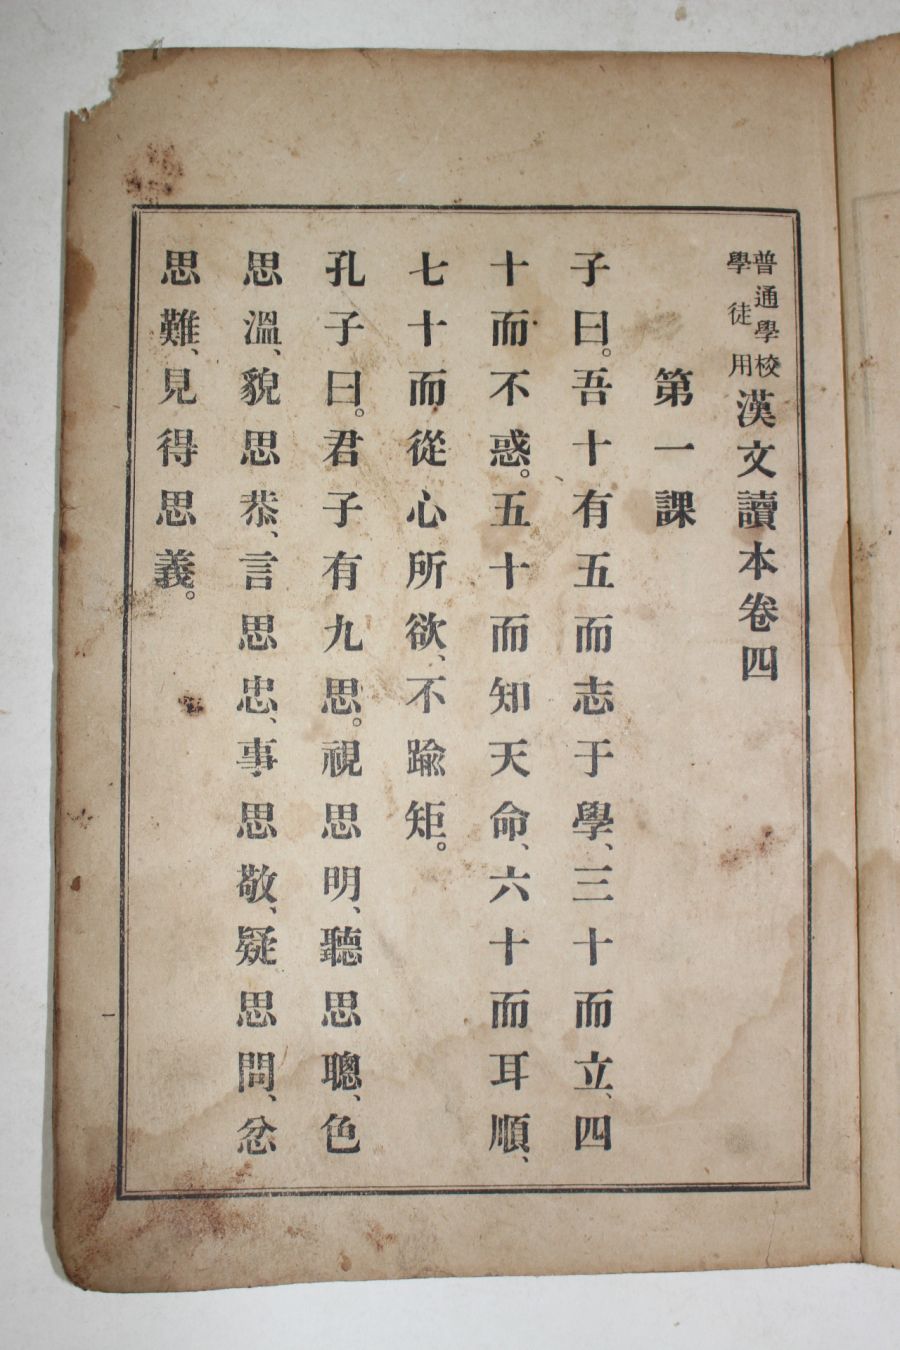 普通學校學徒用漢文讀本卷四
第一課
子曰。吾十有五而志于學、三十而立、四
十而不惑。五十而知天命、六十而耳順、
七十而從心所欲、不踰矩。
孔子曰。君子有九思。視思明、聽思聰、色
思溫、貌思恭、言思忠、事思敬、疑思問、忿
思難、見得思義。